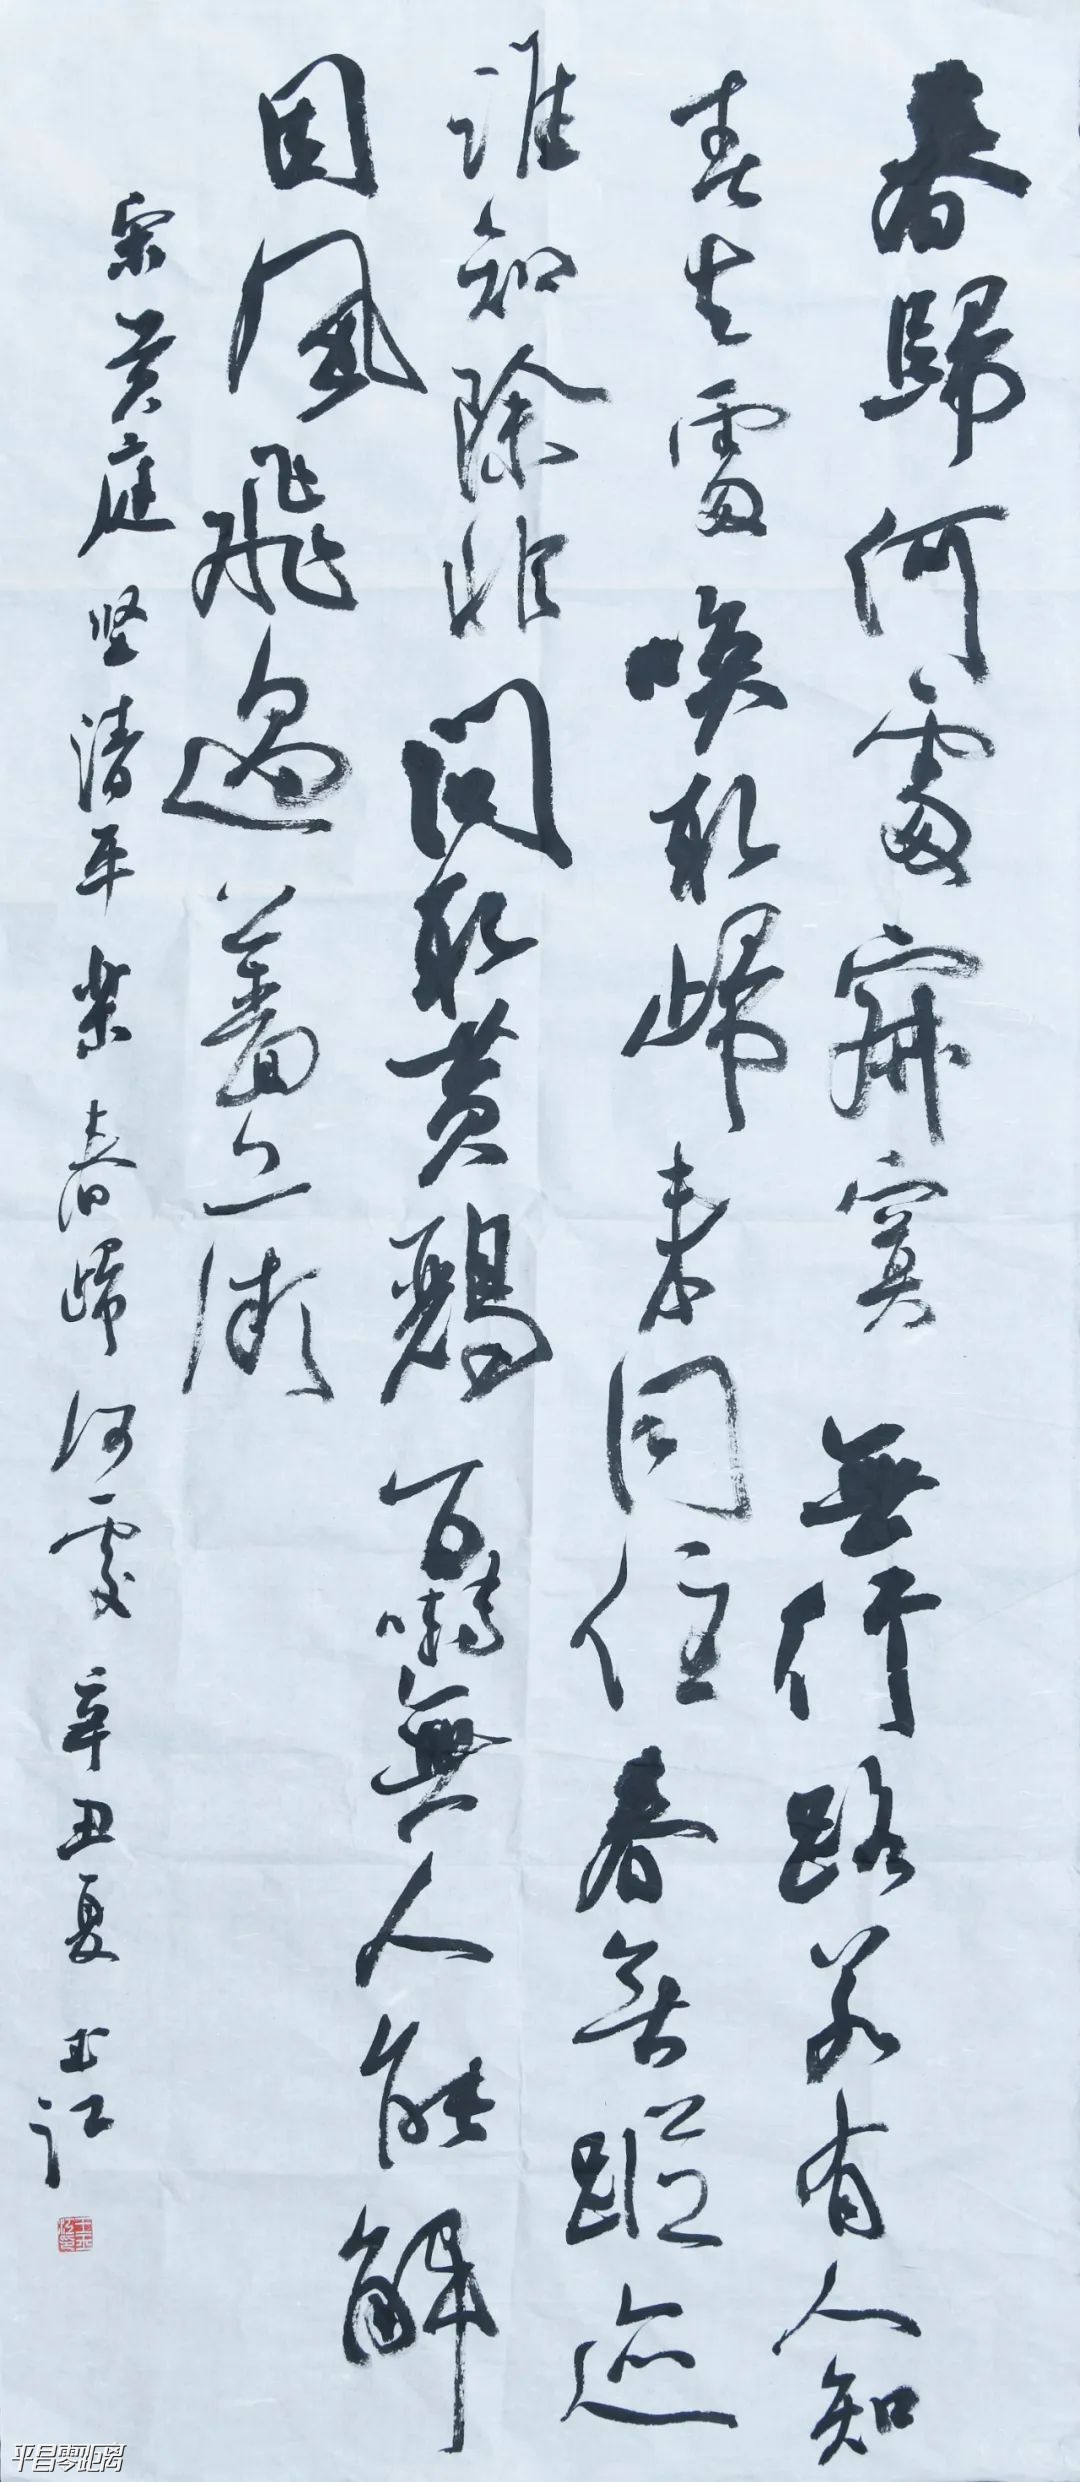 春歸何處寂寞無行路若有人知
春去處喚取歸來同住春無蹤迹
誰知除非問取黃鸝百囀無人能解
因風飛過薔薇
宋黄庭坚清平樂春歸何處 辛丑夏 玉江
平昌零距离